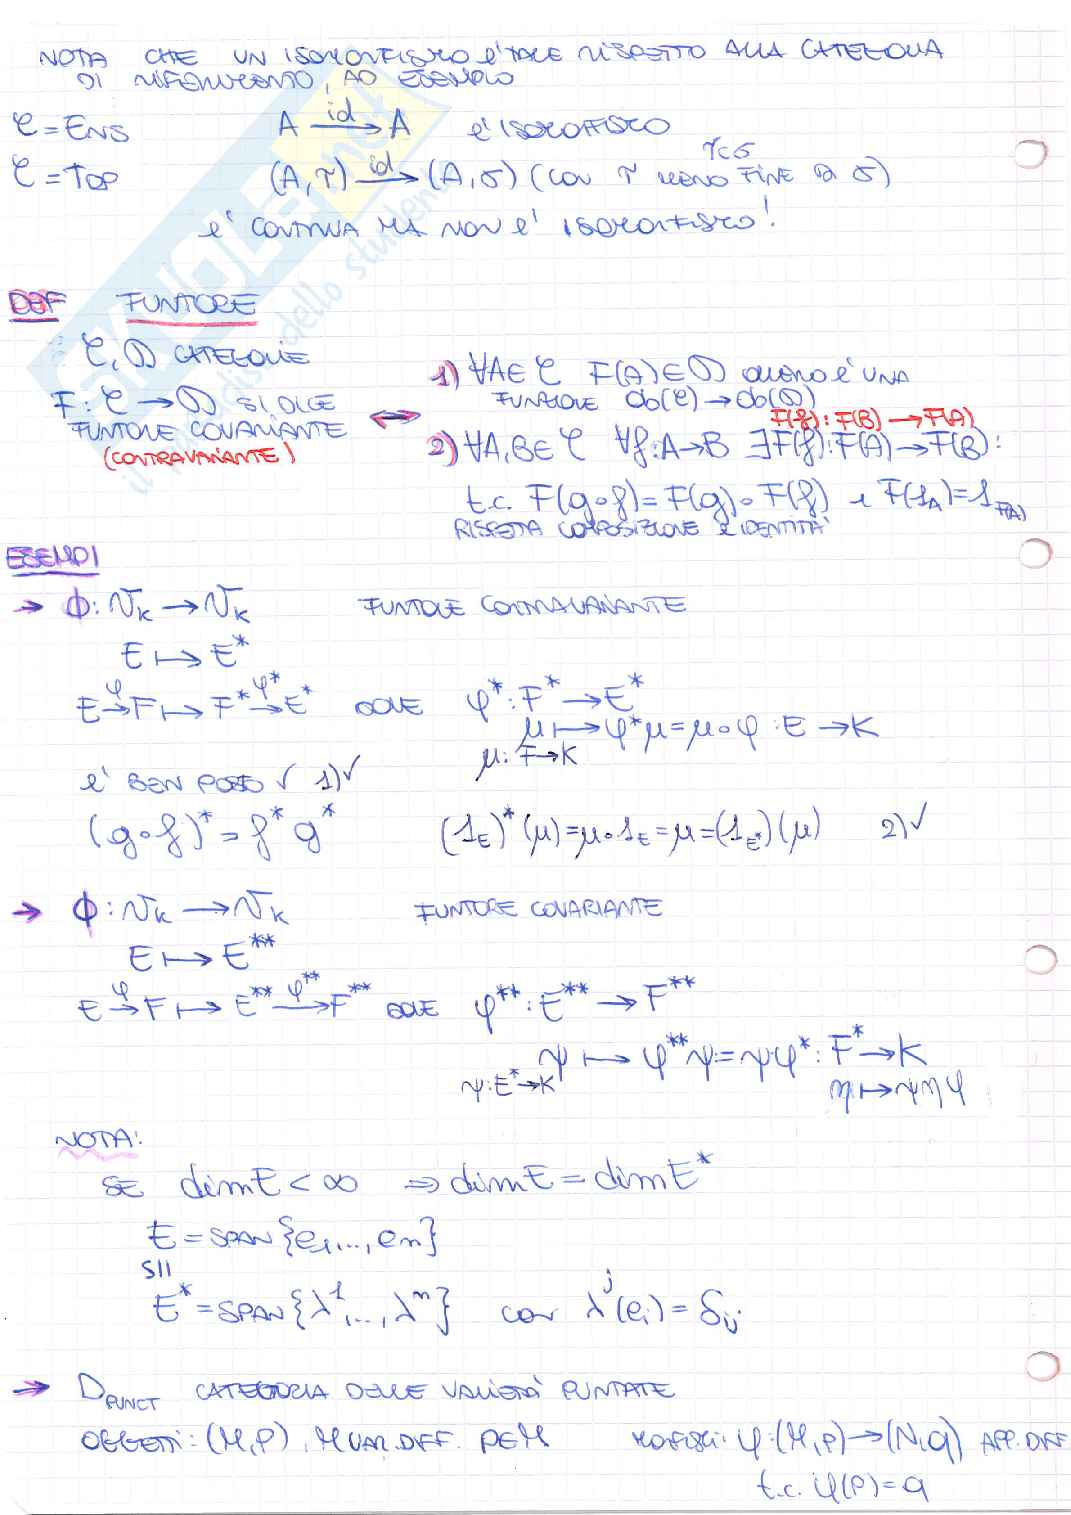 NOTA CHE UN ISOMORFISMO E' TALE RISPETTO ALLA CATEGORIA
DI RIFERIMENTO, AD ESEMPIO
C = ENS A —id→ A E' ISOMORFISMO
τ⊂σ
C = TOP (A,τ) —id→ (A,σ) (CON τ MENO FINE DI σ)
E' CONTINUA MA NON E' ISOMORFISMO!
DEF FUNTORE
C, D CATEGORIE
1) ∀A∈C F(A)∈D OVVERO E' UNA
F: C → D SI DICE
FUNZIONE Ob(C) → Ob(D)
FUNTORE COVARIANTE ⟺
F(f): F(B) → F(A)
(CONTRAVARIANTE)
2) ∀A,B∈C ∀f:A→B ∃F(f):F(A)→F(B):
t.c. F(g∘f)=F(g)∘F(f) e F(1_A)=1_F(A)
RISPETTA COMPOSIZIONE E IDENTITÀ
ESEMPI
→ ϕ: V_K → V_K FUNTORE CONTRAVARIANTE
E ↦ E*
E —φ→ F ↦ F* —φ*→ E* DOVE φ*: F* → E*
μ ↦ φ*μ = μ∘φ : E → K
μ: F→K
E' BEN POSTO ✓ 1)✓
(g∘f)* = f* g* (1_E)*(μ) = μ∘1_E = μ = (1_E*)(μ) 2)✓
→ ϕ: V_K → V_K FUNTORE COVARIANTE
E ↦ E**
E —φ→ F ↦ E** —φ**→ F** DOVE φ**: E** → F**
ψ ↦ φ**ψ = ψφ*: F* → K
ψ: E*→K η ↦ ψηφ
NOTA:
SE dim E < ∞ ⇒ dim E = dim E*
E = SPAN {e1,..., en}
SII
E* = SPAN {λ^1,..., λ^n} CON λ^j(e_i) = δ_ij
→ D_PUNCT CATEGORIA DELLE VARIETÀ PUNTATE
OGGETTI: (M,P), M VAR. DIFF. P∈M MORFISMI: φ: (M,P) → (N,q) APP. DIFF
t.c. φ(P) = q